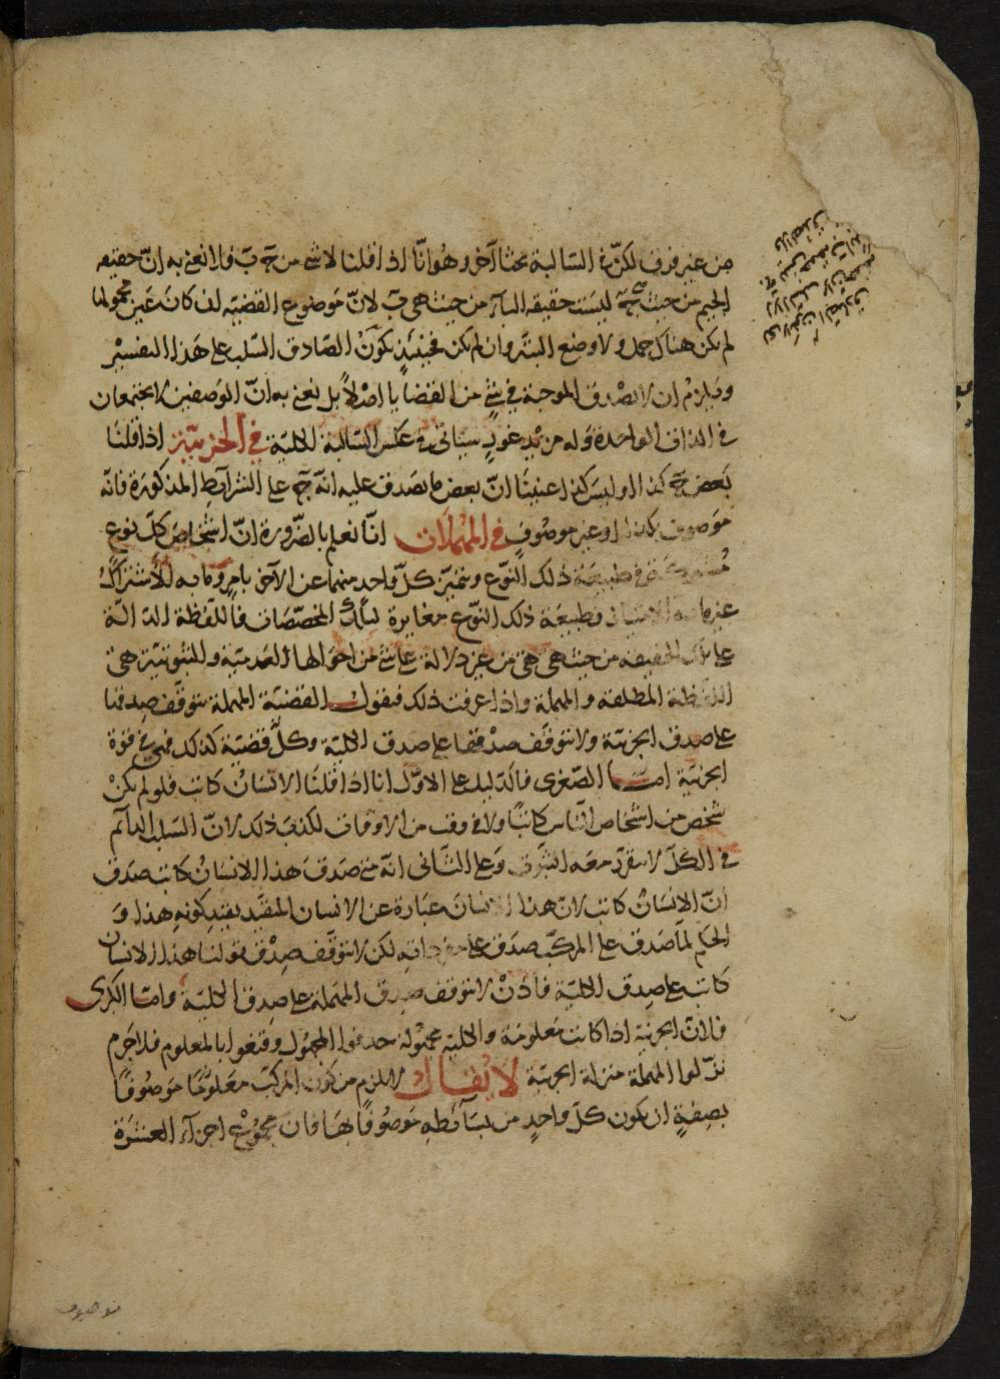 من غير فرق لكن في السالبة بحثا آخر وهو انّا اذا قلنا لا شي من ج ب فلا نعني به انّ حقيقه
الجيم من حيث هي ج ليست حقيقه البآء من حيث هي ب لانّ موضوع القضيّه ان كان عين محمولها
لم يكن هناك حمل ولا وضع البتّة وان لم يكن فحينئذٍ يكون الصّادق السّلب على هذا التفسير
ويلزم ان لا تصدق الموجبة في شيٍ من القضايا اصلاً بل نعني به انّ الوصفين لا يجتمعان
في الذات الواحدة وله مزيد غورٍ سياتي في عكس السّالبة الكليّة في الجزئيّتين اذا قلنا
بعض ج كذا او ليس كذا عنينا انّ بعض ما يصدق عليه انّه ج على الشرآيط المذكورة فانّه
موصوف بكذا او غير موصوفٍ في المهملات انّا نعلم بالضّرورة انّ اشخاص كلّ نوع
مشتركة في طبيعة ذلك النّوع ويتميّز كلّ واحد منهما عن الآخر بامرٍ وما به الاشتراك
غير ما به الامتياز فطبيعة ذلك النّوع مغايرة لتلك المخصّصات فاللّفظة الدالّة
على تلك الحقيقه من حيث هي هي من غير دلالة على شي من احوالها العدميّة والثبوتيّة هي
اللّفظة المطلقه والمهملة واذا عرفت ذلك فنقول القضيّة المهملة يتوقّف صدقها
على صدق الجزئيّة ولا يتوقّف صدقها على صدق الكليّة وكلّ قضيّة كذلك فهي في قوّة
الجزئيّة امّا الصّغرى فالدّليل على الاوّل انا اذا قلنا الانسان كاتب فلو لم يكن
شخص من اشخاص النّاس كاتبًا ولا في وقت من الاوقات لكذب ذلك لانّ السّلب الدآئم
في الكلّ لا يتقرّر معه الثبوت وعلى الثّاني انّه متى صدق هذا الانسان كاتب صدق
انّ الانسان كاتب لانّ هذا الانسان عبارة عن الانسان المقيّد بقيد كونه هذا و
الحكم لمّا صدق على المركّب صدق على مفرداته لكن لا يتوقّف صدق قولنا هذا الانسان
كاتب على صدق الكليّة فاذن لا يتوقف صدق المهملة على صدق الكليّة وامّا الكبرى
فلانّ الجزئيّة اذا كانت معلومة والكليّه مجهولة حذفوا المجهول وقنعوا بالمعلوم فلا جرم
نزّلوا المهملة منزلة الجزئيّة لا يقال لا يلزم من كون المركّب معلومًا موصوفًا
بصفةٍ ان يكون كلّ واحدٍ من بسآئطه موصوفًا بها فان مجموع اجزآء العشرة